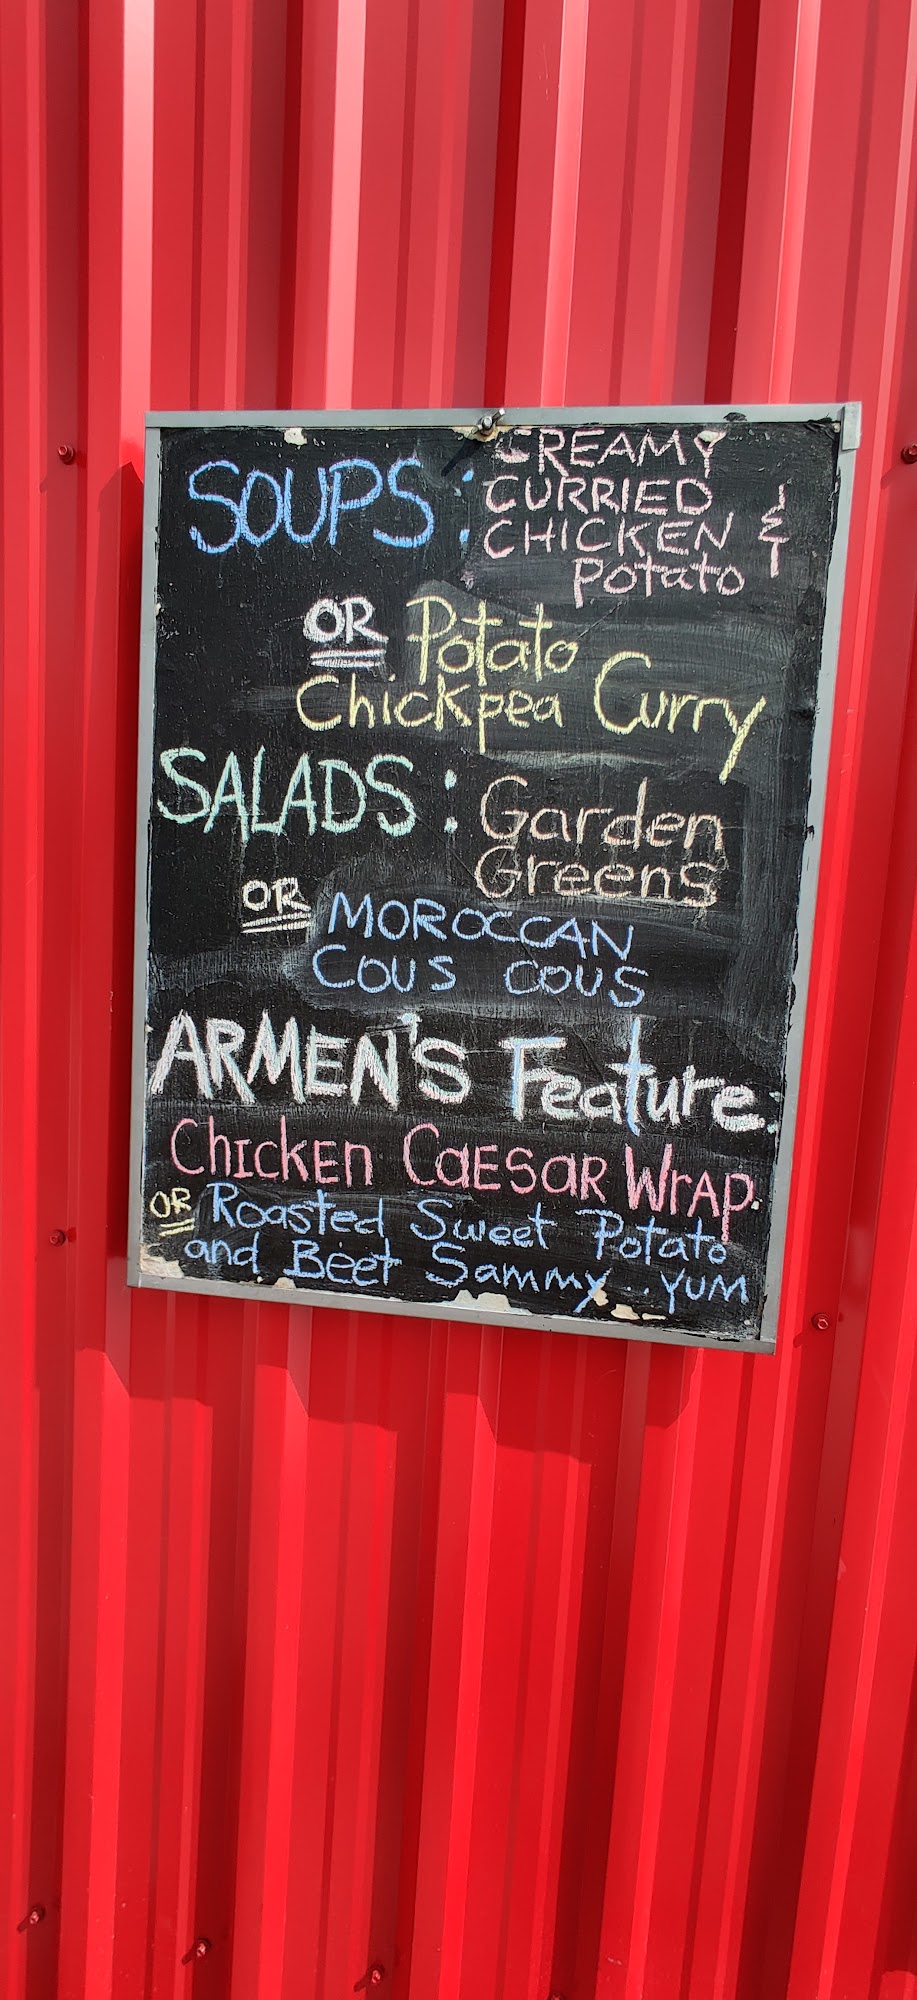 SOUPS: CREAMY
CURRIED
CHICKEN &
Potato
OR Potato
Chickpea Curry
SALADS: Garden
Greens
OR MOROCCAN
COUS COUS
ARMEN'S Feature:
Chicken Caesar Wrap.
OR Roasted Sweet Potato
and Beet Sammy.. YUM